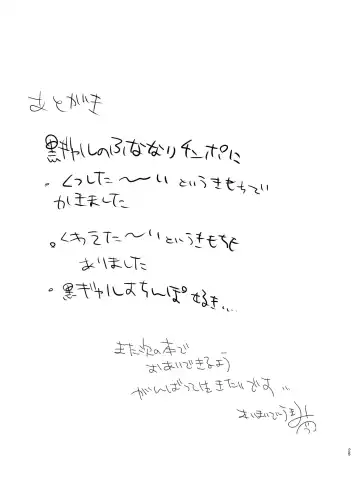 あとがき
黒ギャルのふたなりチンポに
・くっしたい〜〜い というきもちで
かきました
。くわえた〜〜い というきもちも
ありました
・黒ギャルはちんぽ
また次の本で
おあいできるよう
がんばって生きたいです